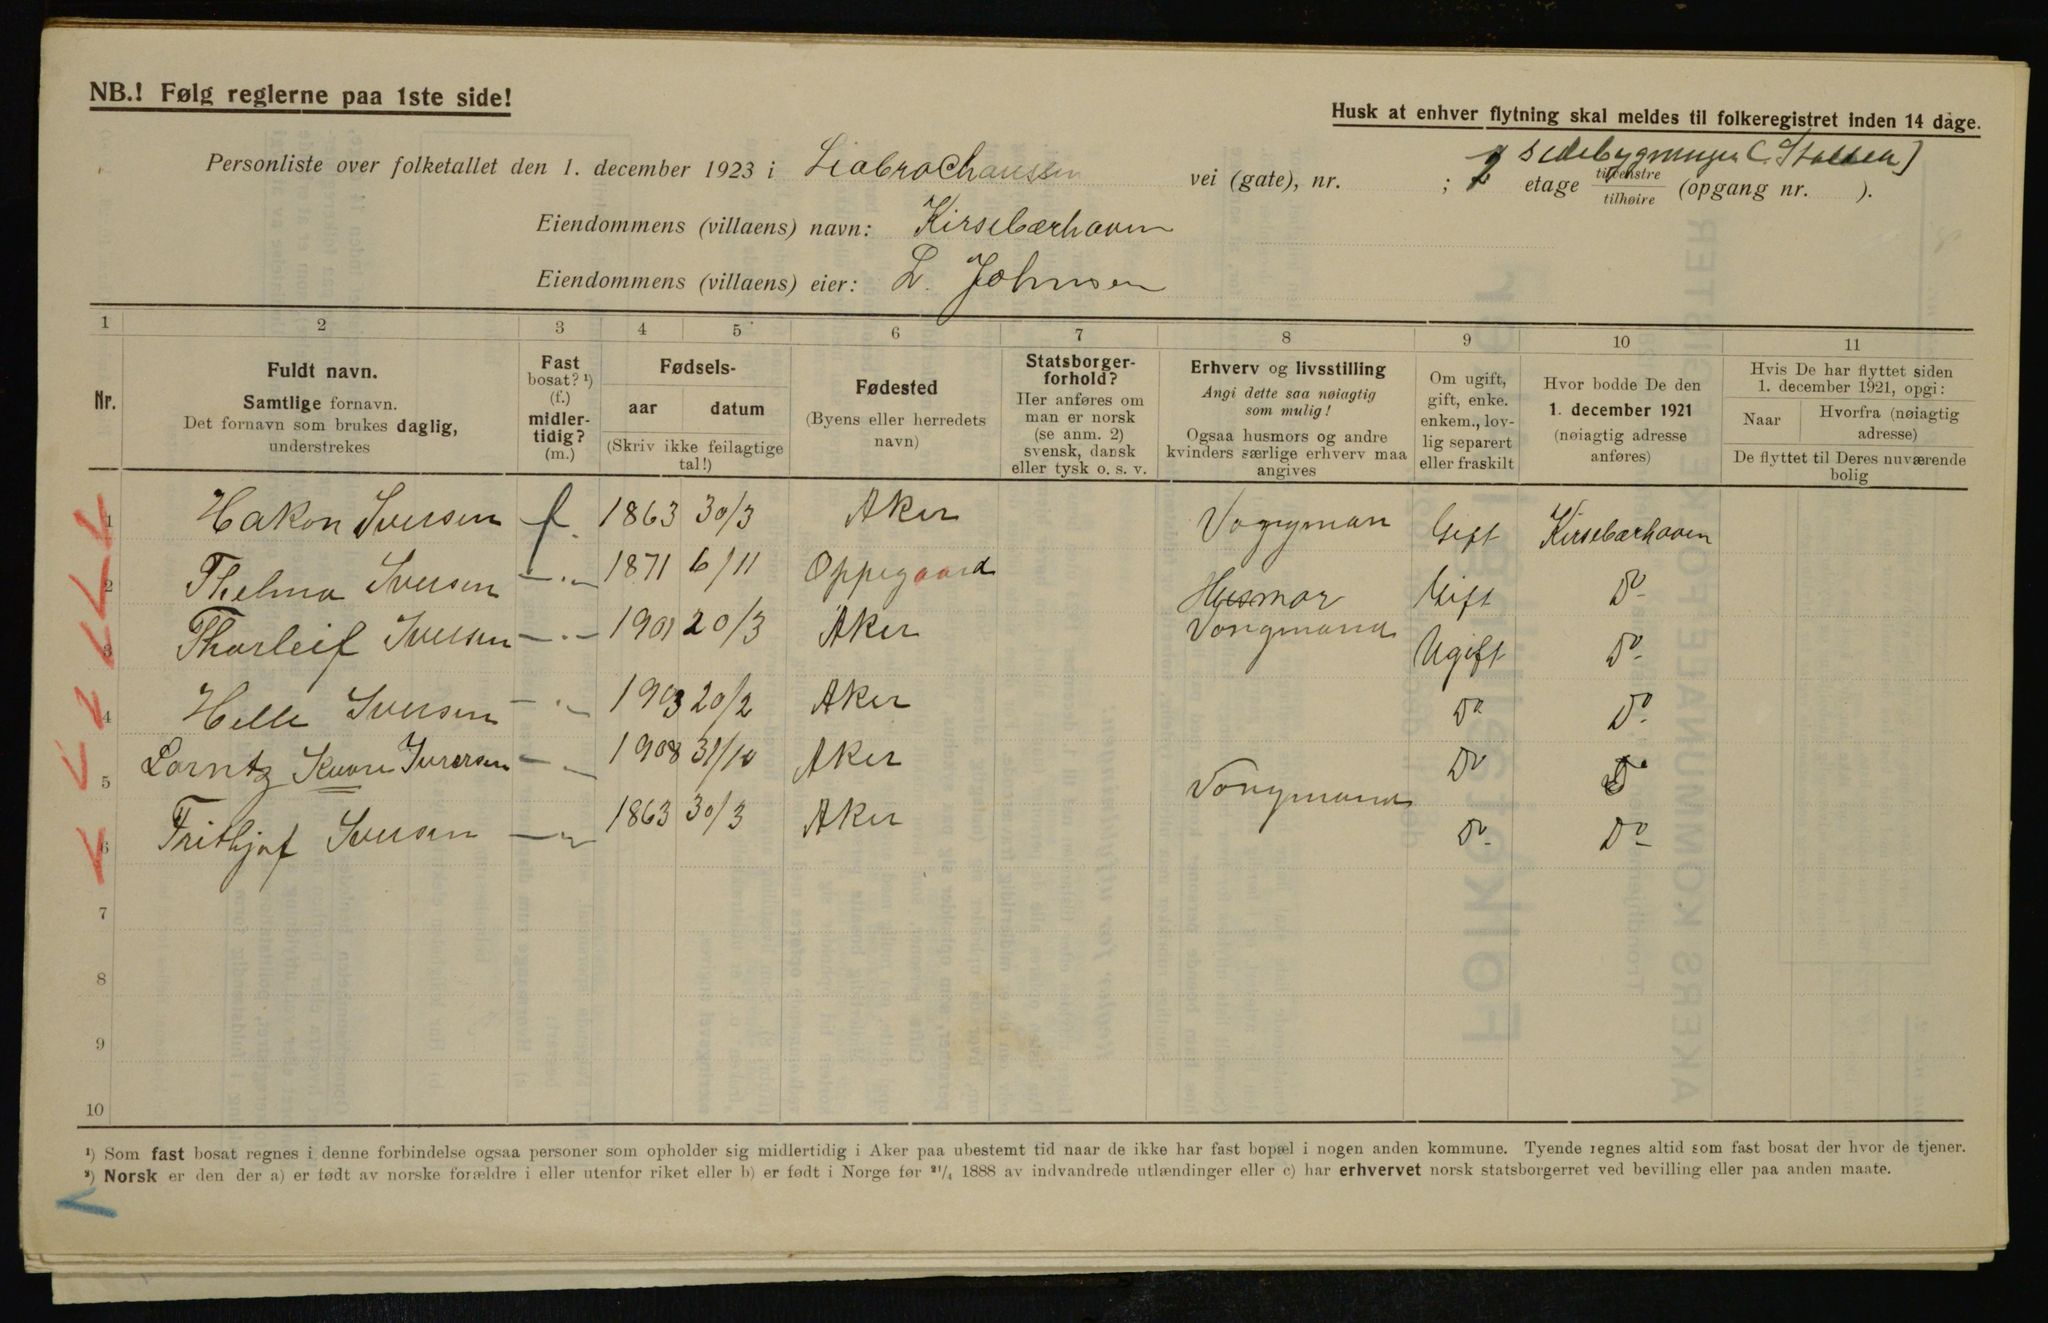 NB.! Følg reglerne paa 1ste side!
Husk at enhver flytning skal meldes til folkeregistret inden 14 dage.
Personliste over folketallet den 1. december 1923 i Liabrochaussen vei (gate), nr. ; 2 etage tilvenstre tilhøire (opgang nr. ).
i sidebygningen (Stallen)
Eiendommens (villaens) navn: Kirsebærhaven
Eiendommens (villaens) eier: L. Johnsen
1 2 3 4 5 6 7 8 9 10 11
Nr.
Fuldt navn.
Samtlige fornavn.
Det fornavn som brukes daglig,
understrekes
Fast
bosat? ¹)
(f.)
midler-
tidig?
(m.)
Fødsels-
aar datum
(Skriv ikke feilagtige
tal!)
Fødested
(Byens eller herredets
navn)
Statsborger-
forhold?
Her anføres om
man er norsk
(se anm. 2)
svensk, dansk
eller tysk o. s. v.
Erhverv og livsstilling
Angi dette saa nøiagtig
som mulig!
Ogsaa husmors og andre
kvinders særlige erhverv maa
angives
Om ugift,
gift, enke.
enkem., lov-
lig separert
eller fraskilt
Hvor bodde De den
1. december 1921
(nøiagtig adresse
anføres)
Hvis De har flyttet siden
1. december 1921, opgi:
Naar Hvorfra (nøiagtig
adresse)
De flyttet til Deres nuværende
bolig
1 Hakon Iversen f. 1863 30/3 Aker Vognman Gift Kirsebærhaven
2 Thelma Iversen —„— 1871 6/11 Oppegaard Husmor Gift Do
3 Thorleif Iversen —„— 1901 20/3 Aker Vongmand Ugift Do
4 Helle Iversen —„— 1903 20/2 Aker Do Do
5 Lorntz Kaare Iversen —„— 1908 31/10 Aker Do Do
6 Frithjof Iversen —„— 1863 30/3 Aker Vongmand Do Do
7
8
9
10
¹) Som fast bosat regnes i denne forbindelse ogsaa personer som opholder sig midlertidig i Aker paa ubestemt tid naar de ikke har fast bopæl i nogen anden kommune. Tyende regnes altid som fast bosat der hvor de tjener.
²) Norsk er den der a) er født av norske forældre i eller utenfor riket eller b) er født i Norge før ²¹/₄ 1888 av indvandrede utlændinger eller c) har erhvervet norsk statsborgerret ved bevilling eller paa anden maate.